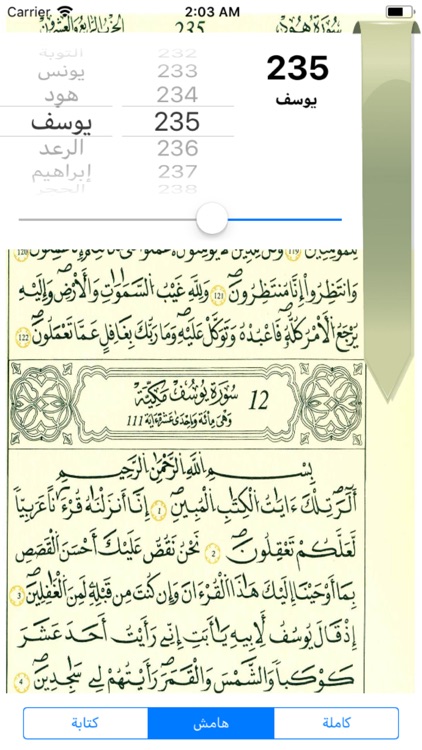 Carrier 2:03 AM
سُورَةُ هُودٍ 235
232
يونس 233
هود 234
يوسف 235
الرعد 236
إبراهيم 237
الحجر 238
235
يوسف
وَانتَظِرُوٓاْ إِنَّا مُنتَظِرُونَ 121 وَلِلَّهِ غَيْبُ السَّمَٰوَٰتِ وَالْأَرْضِ وَإِلَيْهِ
يَرْجِعُ الْأَمْرُ كُلُّهُۥ فَاعْبُدْهُ وَتَوَكَّلْ عَلَيْهِ وَمَا رَبُّكَ بِغَٰفِلٍ عَمَّا تَعْمَلُونَ 122
سُورَةُ يُوسُفَ مَكِّيَّة 12
وَهْيَ مِائَة وَإِحْدَىٰ عَشْرَةَ ءَايَة 111
بِسْمِ اللَّهِ الرَّحْمَٰنِ الرَّحِيمِ
أَلَٓر تِلْكَ ءَايَٰتُ الْكِتَٰبِ الْمُبِينِ 1 إِنَّآ أَنزَلْنَٰهُ قُرْءَٰناً عَرَبِيّاً
لَّعَلَّكُمْ تَعْقِلُونَ 2 نَحْنُ نَقُصُّ عَلَيْكَ أَحْسَنَ الْقَصَصِ
بِمَآ أَوْحَيْنَآ إِلَيْكَ هَٰذَا الْقُرْءَانَ وَإِن كُنتَ مِن قَبْلِهِۦ لَمِنَ الْغَٰفِلِينَ 3
إِذْ قَالَ يُوسُفُ لِأَبِيهِ يَٰٓأَبَتِ إِنِّي رَأَيْتُ أَحَدَ عَشَرَ
كَوْكَباً وَالشَّمْسَ وَالْقَمَرَ رَأَيْتُهُمْ لِي سَٰجِدِينَ 4
كاملة هامش كتابة